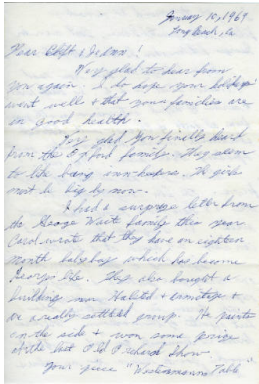 January 10, 1969
Long Beach, Ca
Dear Cliff &
Very glad to hear from
you again. I do hope your holidays
went well & that your families are
in good health.
Very glad you finally heard
from the family. They seem
to like being The girls
must be big by now.
I had a surprise letter from
the George Wait family this year
Carol wrote that they have an eighteen
month baby boy which has become
George's life. They also bought a
building near &
are really settled He paints
on the side & won some prize
at the last Show
Your piece "